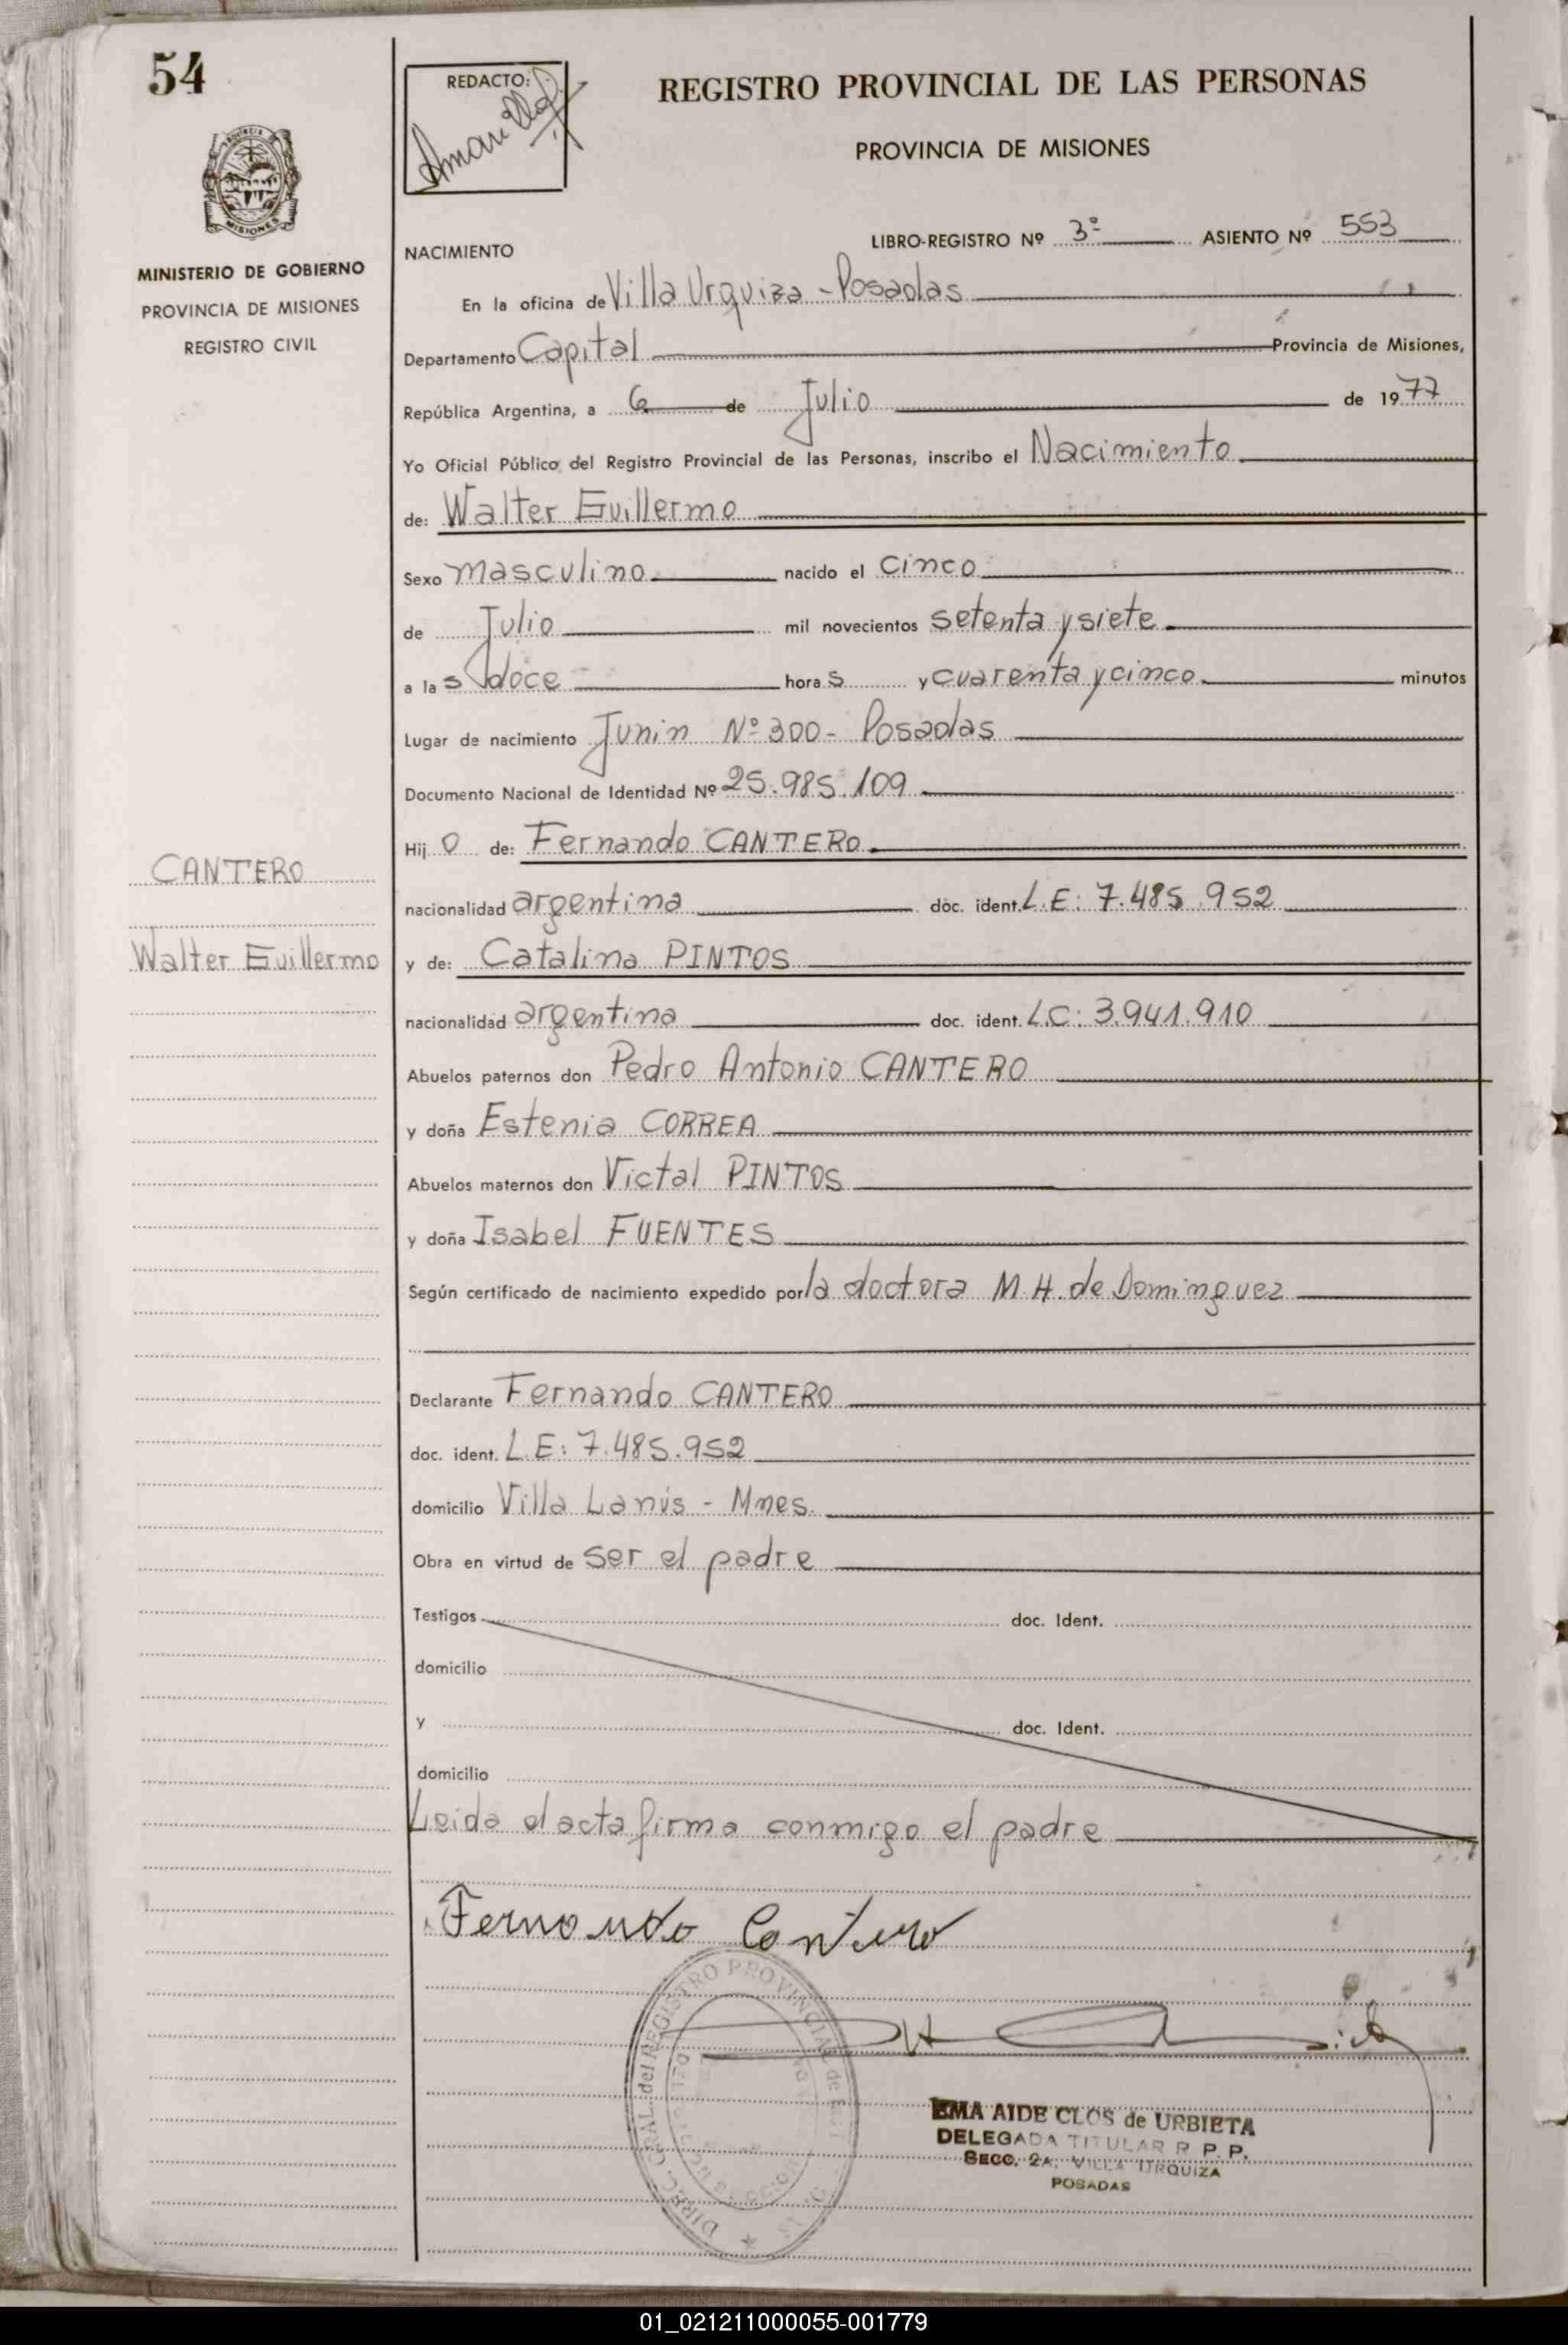 54
REDACTO:
REGISTRO PROVINCIAL DE LAS PERSONAS
PROVINCIA DE MISIONES
MISIONES
MINISTERIO DE GOBIERNO
PROVINCIA DE MISIONES
REGISTRO CIVIL
NACIMIENTO LIBRO-REGISTRO Nº 3º ASIENTO Nº 553
En la oficina de Villa Urquiza - Posadas
Departamento Capital Provincia de Misiones,
República Argentina, a 6 de Julio de 1977
Yo Oficial Público del Registro Provincial de las Personas, inscribo el Nacimiento
de: Walter Guillermo
Sexo masculino nacido el cinco
de Julio mil novecientos setenta y siete
a las doce horas y cuarenta y cinco minutos
Lugar de nacimiento Junin Nº 300 - Posadas
Documento Nacional de Identidad Nº 25.985.109
Hijo de: Fernando CANTERO
CANTERO
nacionalidad argentina doc. ident. L.E: 7.485.952
Walter Guillermo
y de: Catalina PINTOS
nacionalidad argentina doc. ident. L.C: 3.941.910
Abuelos paternos don Pedro Antonio CANTERO
y doña Estenia CORREA
Abuelos maternos don Victal PINTOS
y doña Isabel FUENTES
Según certificado de nacimiento expedido por la doctora M.H. de Dominguez
Declarante Fernando CANTERO
doc. ident. L.E: 7.485.952
domicilio Villa Lanús - Mnes.
Obra en virtud de ser el padre
Testigos doc. Ident.
domicilio
y doc. Ident.
domicilio
Leida el acta firma conmigo el padre
Fernando Cantero
DIREC. GRAL. del REGISTRO PROVINCIAL de
EMA AIDE CLOS de URBIETA
DELEGADA TITULAR R. P. P.
SECC. 2A. VILLA URQUIZA
POSADAS
01_021211000055-001779